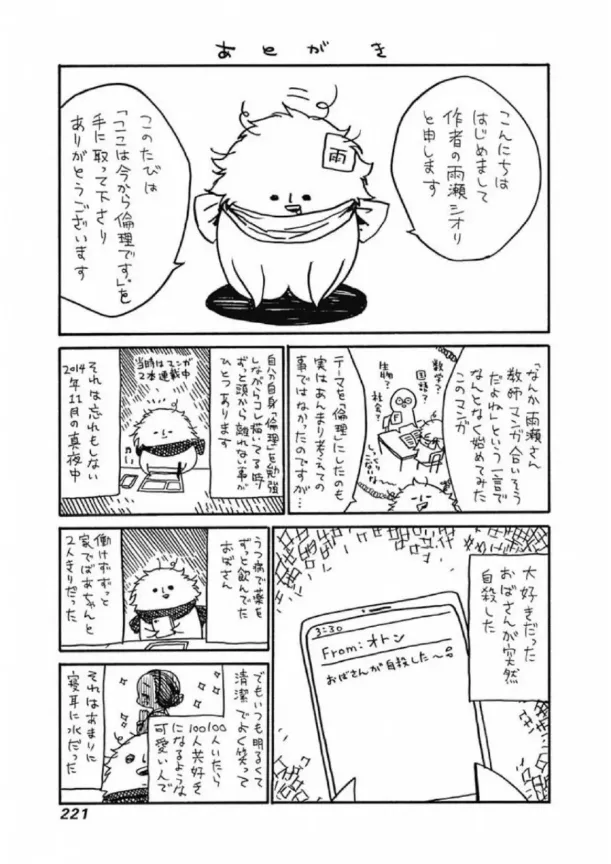 あとがき
こんにちは
はじめまして
作者の雨瀬シオリ
と申します
雨
このたびは
「ここは今から倫理です。」を
手に取って下さり
ありがとうございます
「なんか雨瀬さん
教師マンガ合いそう
だよね」という一言で
なんとなく始めてみた
このマンガ
数学?
国語?
生物?
社会?
テーマを「倫理」にしたのも
実はあんまり考えての
事ではなかったのですが…
自分自身「倫理」を勉強
しながらコレ描いてる時
ずっと頭から離れない事が
ひとつあります
当時はマンガ
2本連載中
それは忘れもしない
2014年11月の真夜中
大好きだった
おばさんが突然
自殺した
3:30
From:オトン
おばさんが自殺した〜
うつ病で薬を
ずっと飲んでた
おばさん
働けずずっと
家でばあちゃんと
2人きりだった
でもいつも明るくて
清潔でよく笑って
100人いたら
100人共好き
になるような
可愛い人で
それはあまりに
寝耳に水だった
221